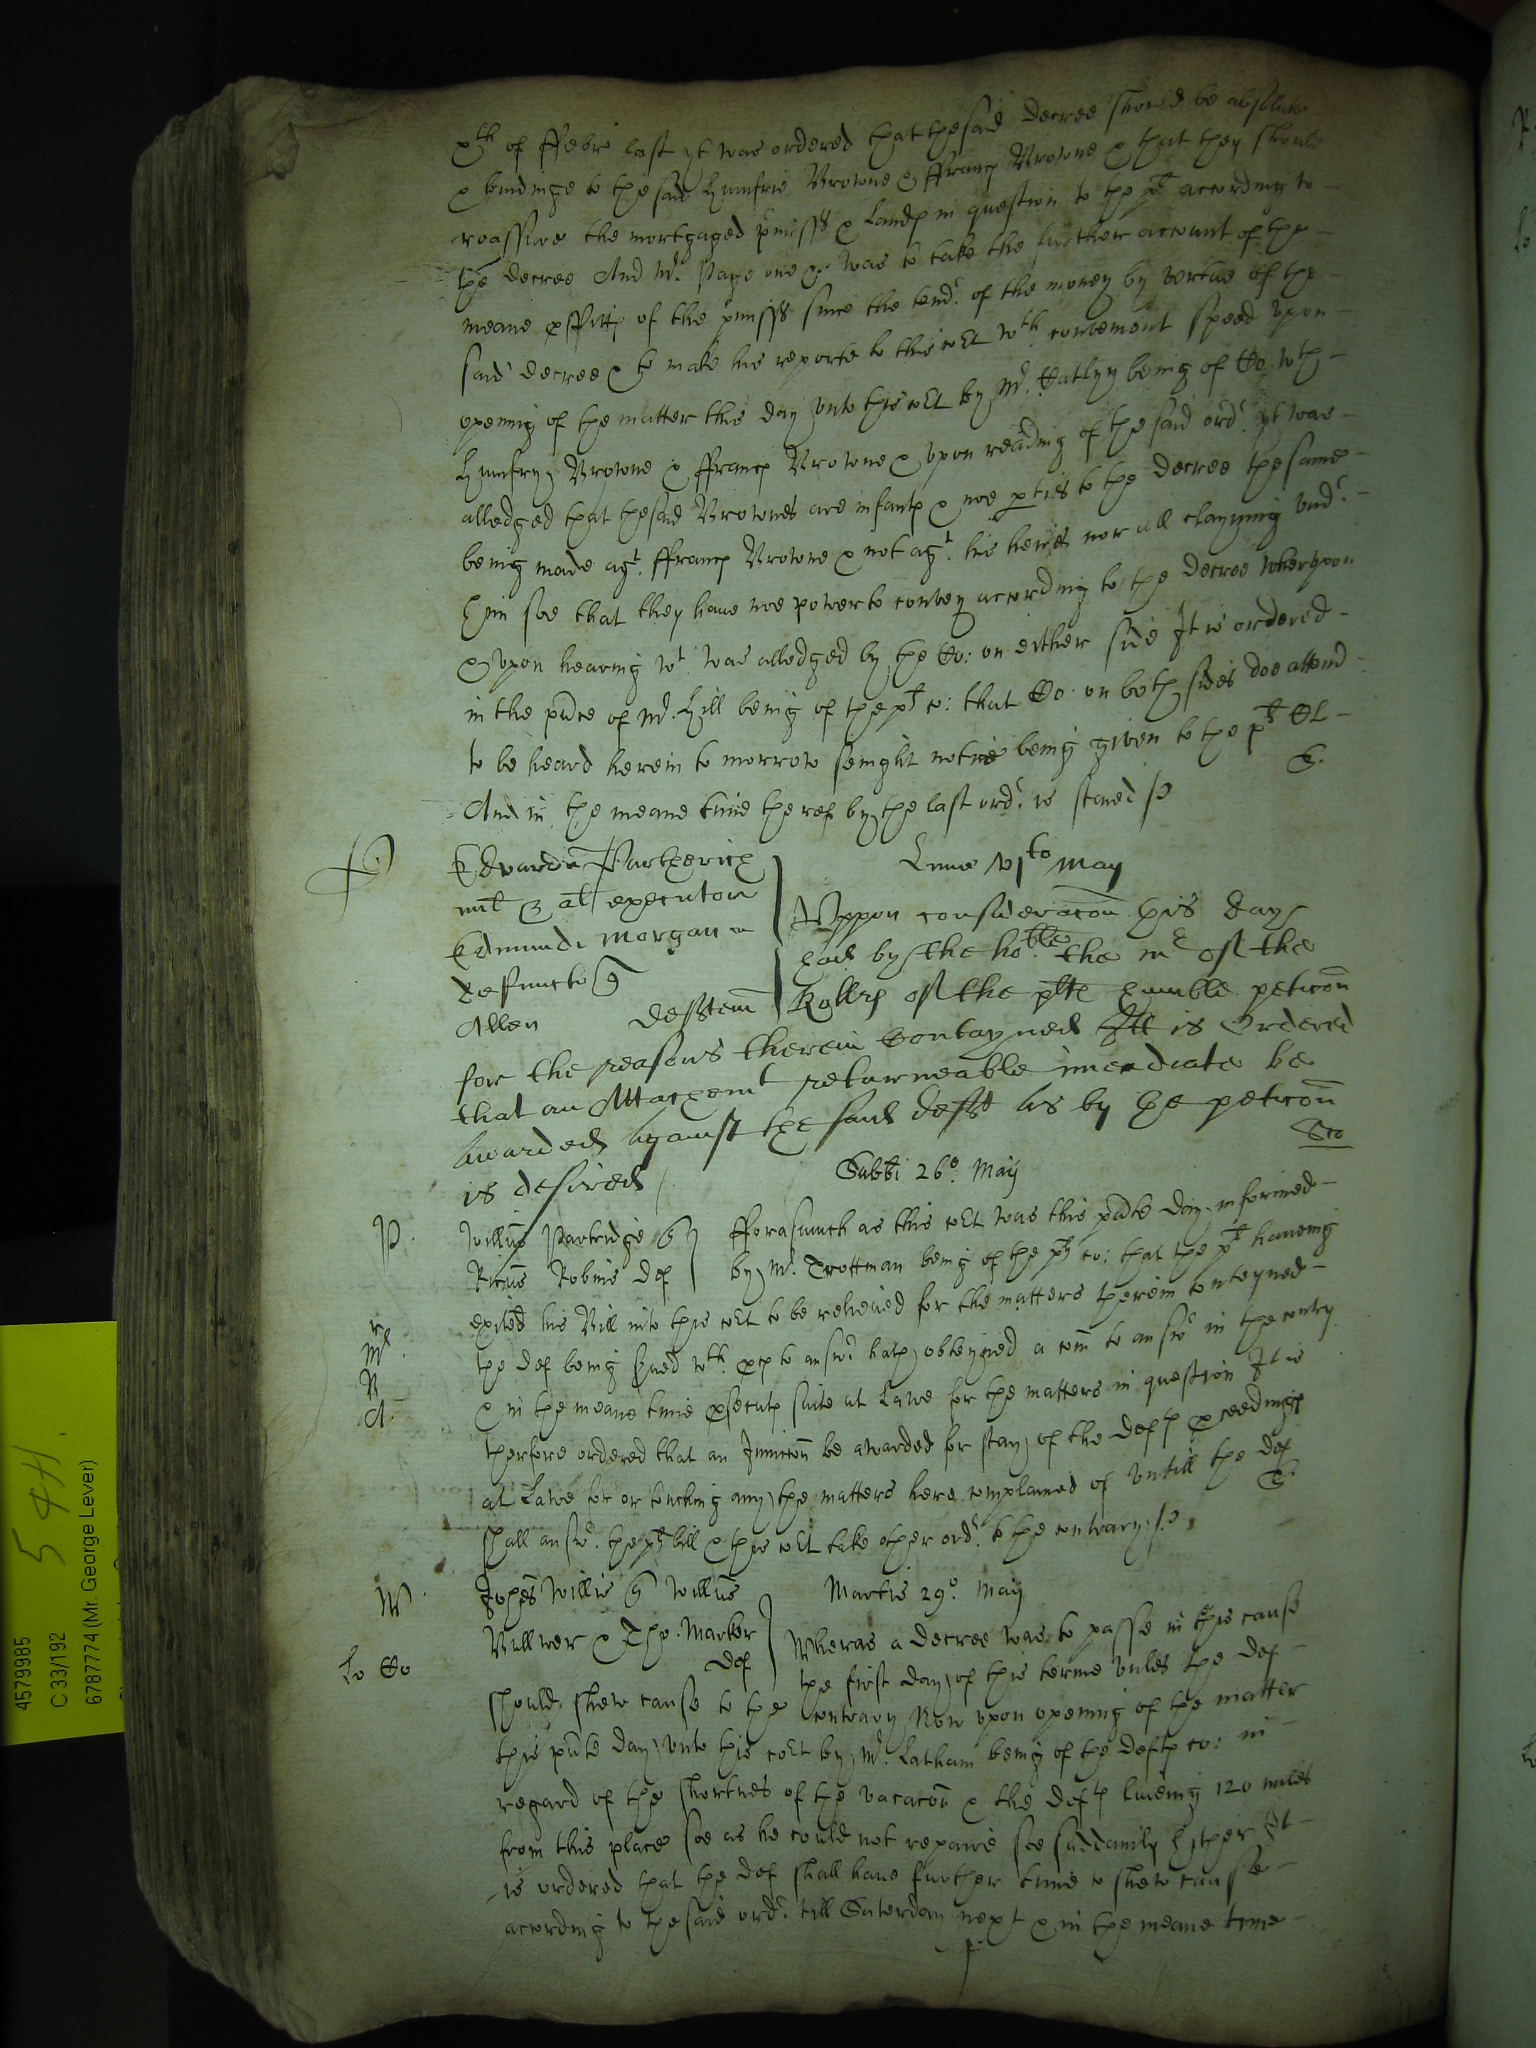 xth of ffebr last yt was ordered that the said decree should be absolute
& bindinge to the said Humfrie Browne & ffrancs Browne & that they should
reassure the mortgaged pmisss & Lands in question to the plt according to
the decree And Mr. Page one &c was to take the further account of the
meane pffitts of the pmisss since the tendr. of the money by vertue of the
said decree & to make his reporte to this cort wth. convenient speed vpon
opening of the matter this day vnto this cort by Mr. Hatly being of Co. wth
Humfry Browne & ffrancs Browne & vpon reading of the said ordr. yt was
alledged that the said Brownes are infants & noe pties to the decree the same
being made agt. ffrancs Browne & not agt. his heires nor all clayming vndr.
him soe that they haue noe power to convey according to the decree wherevpon
& vpon hearing wt. was alledged by the Co: on either side It is ordered
in the pnce of Mr. Hill being of the plts co: that Co. on both sides doe attend
to be heard herein to morrow senight notice being given to the plts Cl
And in the meane time the ref by the last ordr. is staied
Edvardus Partheriche
mil & al executor
Edmundi Morgan
defuncto
Allen deften
Lune vito May
Vppon consideracon this day
had by the hoble the mr of the
Rolls of the plts humble peticon
for the reasons therein Contayned Itt is Ordered
that an Attachemt returneable imediate be
Awarded Against the said deft As by the peticon
is desired
Sabbi 26o. May
P.
Willus Partridge
Ricus Robins def
fforasmuch as this cort was this pnte day informed
by Mr. Trottman being of the plts co: that the plt haueing
exited his Bill into this cort to be releiued for the matters therein conteyned
the def being serued wth. pces to answr. hath obteyned a com to answr in the contry
& in the meane time psecuts suite at Lawe for the matters in question It is
therfore ordered that an Iniuncon be awarded for stay of the defts pceedings
at Lawe for or touching any the matters here complained of vntill the def
shall answr. the plts bill & this cort take other ordr. to the contrary
W.
Johes Willis Willus
Bullwer & Tho. Marker
def
Martis 29o. May
Lo Co
Wheras a decree was to passe in this cause
the first day of this terme vnles the def
should shew cause to the contrary Now vpon opening of the matter
this pnte day vnto this cort by Mr. Latham being of the defts co: in
regard of the shortnes of the vacacon & the defts liueing 120 miles
from this place soe as he could not repaire soe suddainly hither It
is ordered that the def shall haue further time to shew cause
according to the said ordr. till Saterday next & in the meane time
4579985
C 33/192
6787774 (Mr. George Lever)